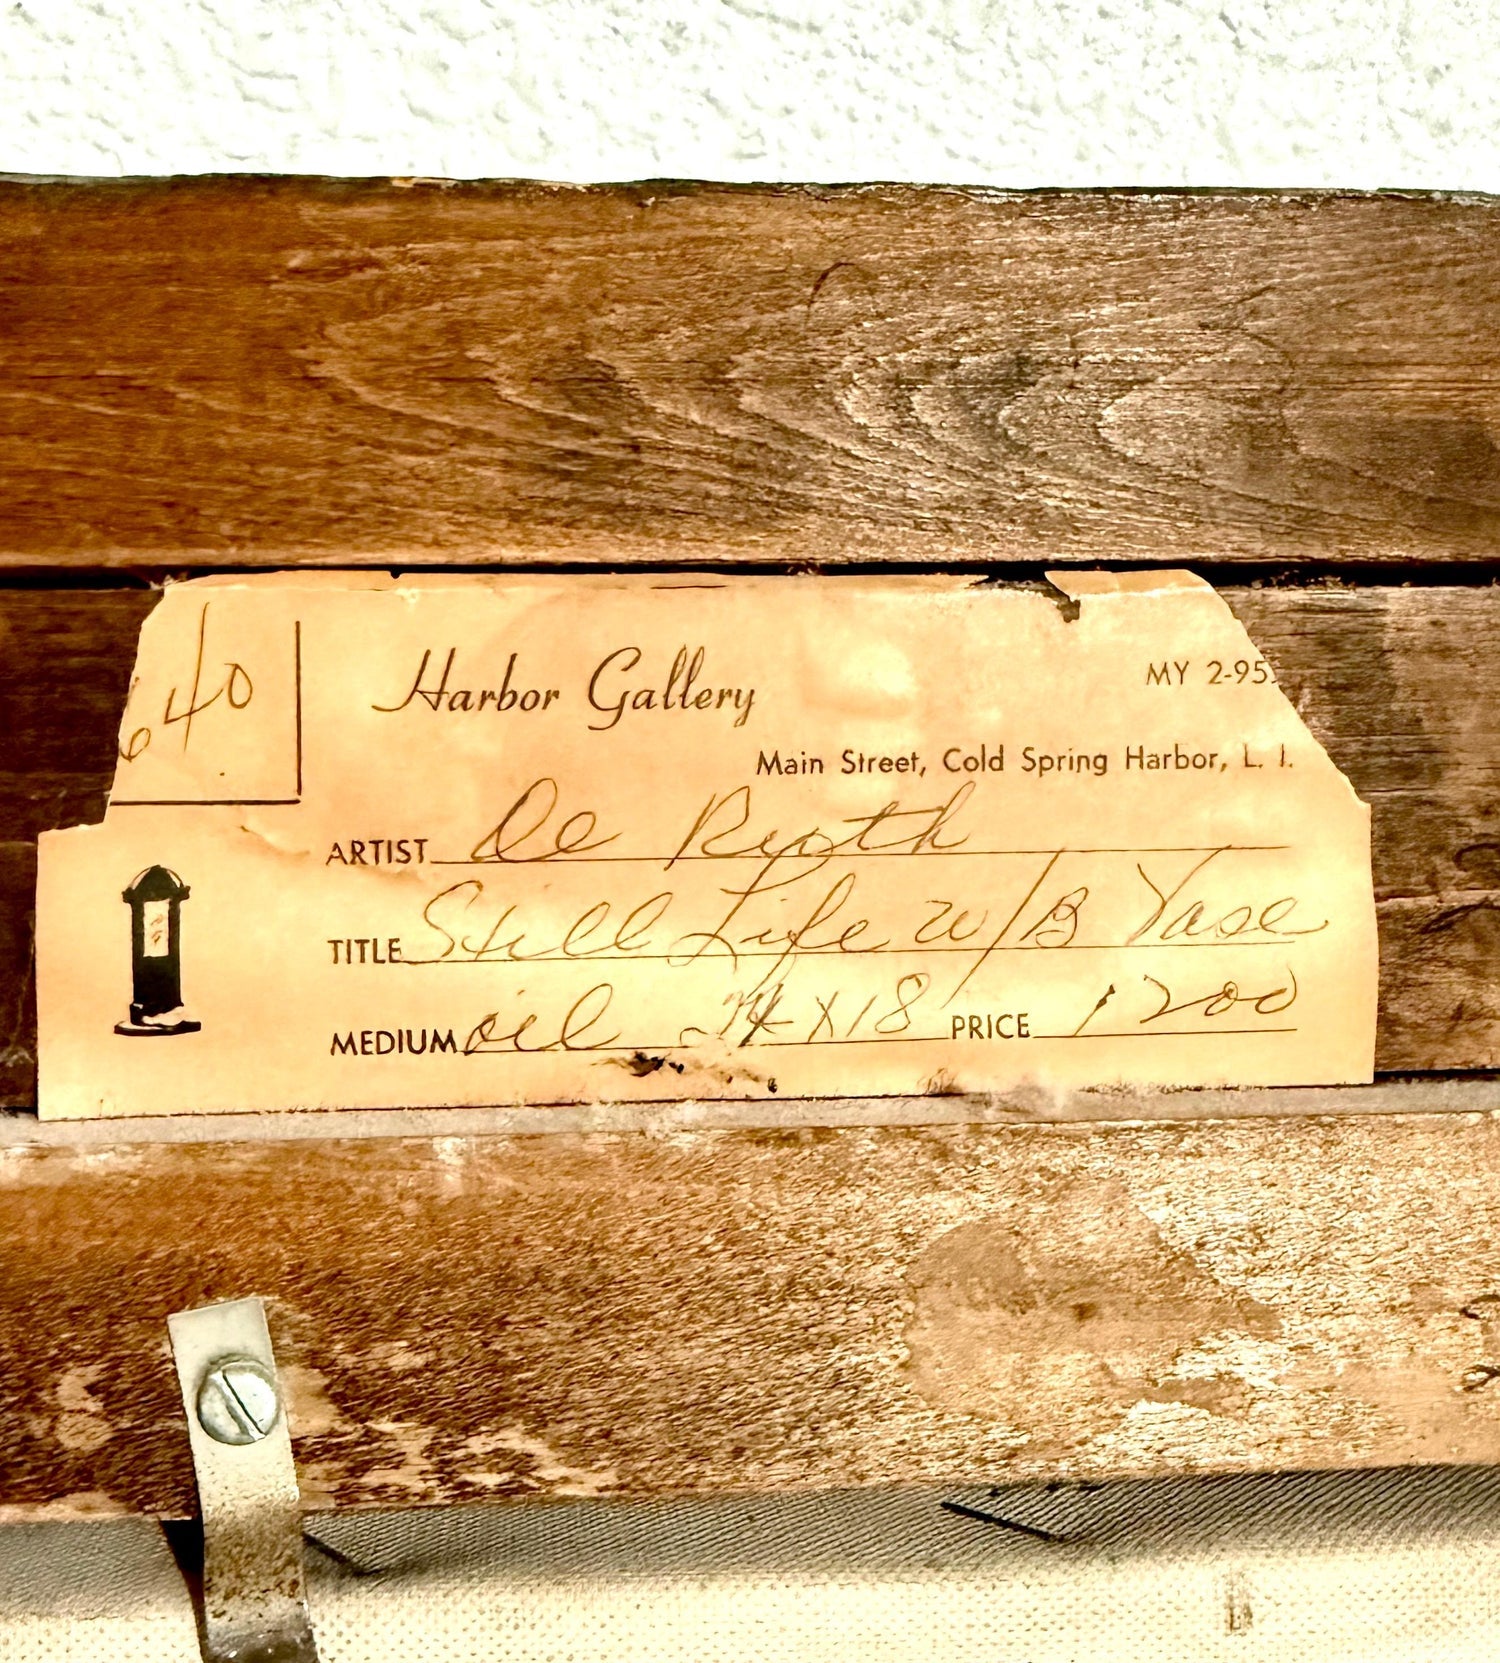 640
Harbor Gallery
MY 2-95
Main Street, Cold Spring Harbor, L. I.
ARTIST De Ruth
TITLE Still Life w/B Vase
MEDIUM oil 24 X 18 PRICE 1200